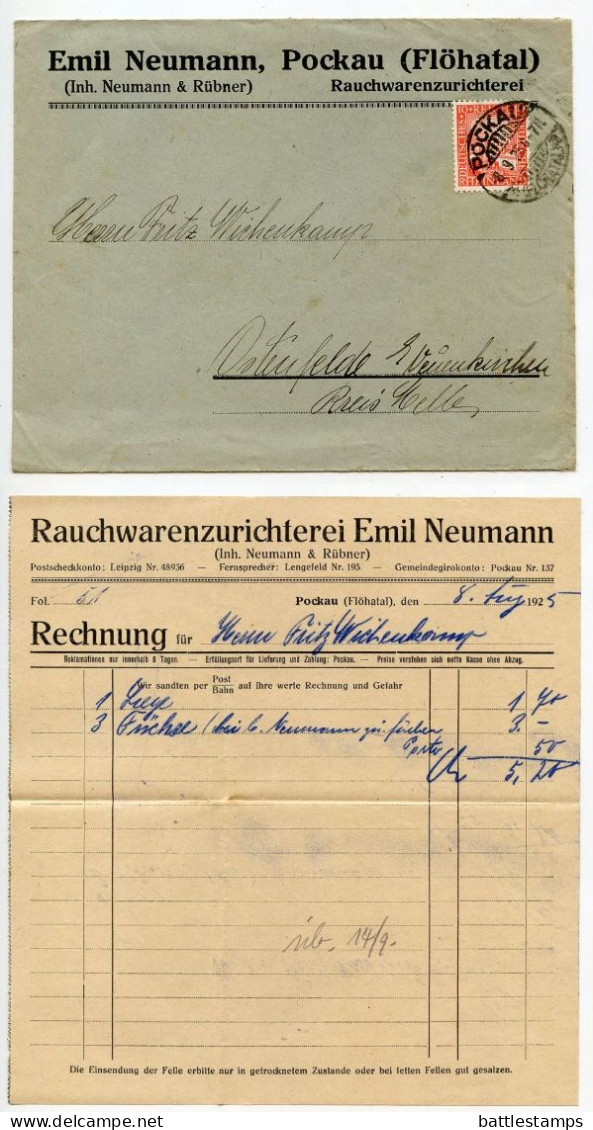 Emil Neumann, Pockau (Flöhatal)
(Inh. Neumann & Rübner) Rauchwarenzurichterei
POCKAU
Herrn Fritz Wichenkamp
Ostenfelde b/ Neuenkirchen
Kreis Melle
Rauchwarenzurichterei Emil Neumann
(Inh. Neumann & Rübner)
Postscheckkonto: Leipzig Nr. 48956 — Fernsprecher: Lengefeld Nr. 195 — Gemeindegirokonto: Pockau Nr. 137
Fol. Pockau (Flöhatal), den 8. 1925
Rechnung für Herrn Fritz Wichenkamp
Reklamationen nur innerhalb 8 Tagen. — Erfüllungsort für Lieferung und Zahlung: Pockau. — Preise verstehen sich netto Kasse ohne Abzug.
Wir sandten per Post Bahn auf Ihre werte Rechnung und Gefahr
1 Ziege 1 70
3 Füchse (bei C. Neumann zu färben 3. —
Porto 50
5, 20
üb. 14/9.
Die Einsendung der Felle erbitte nur in getrocknetem Zustande oder bei fetten Fellen gut gesalzen.
battlestamps